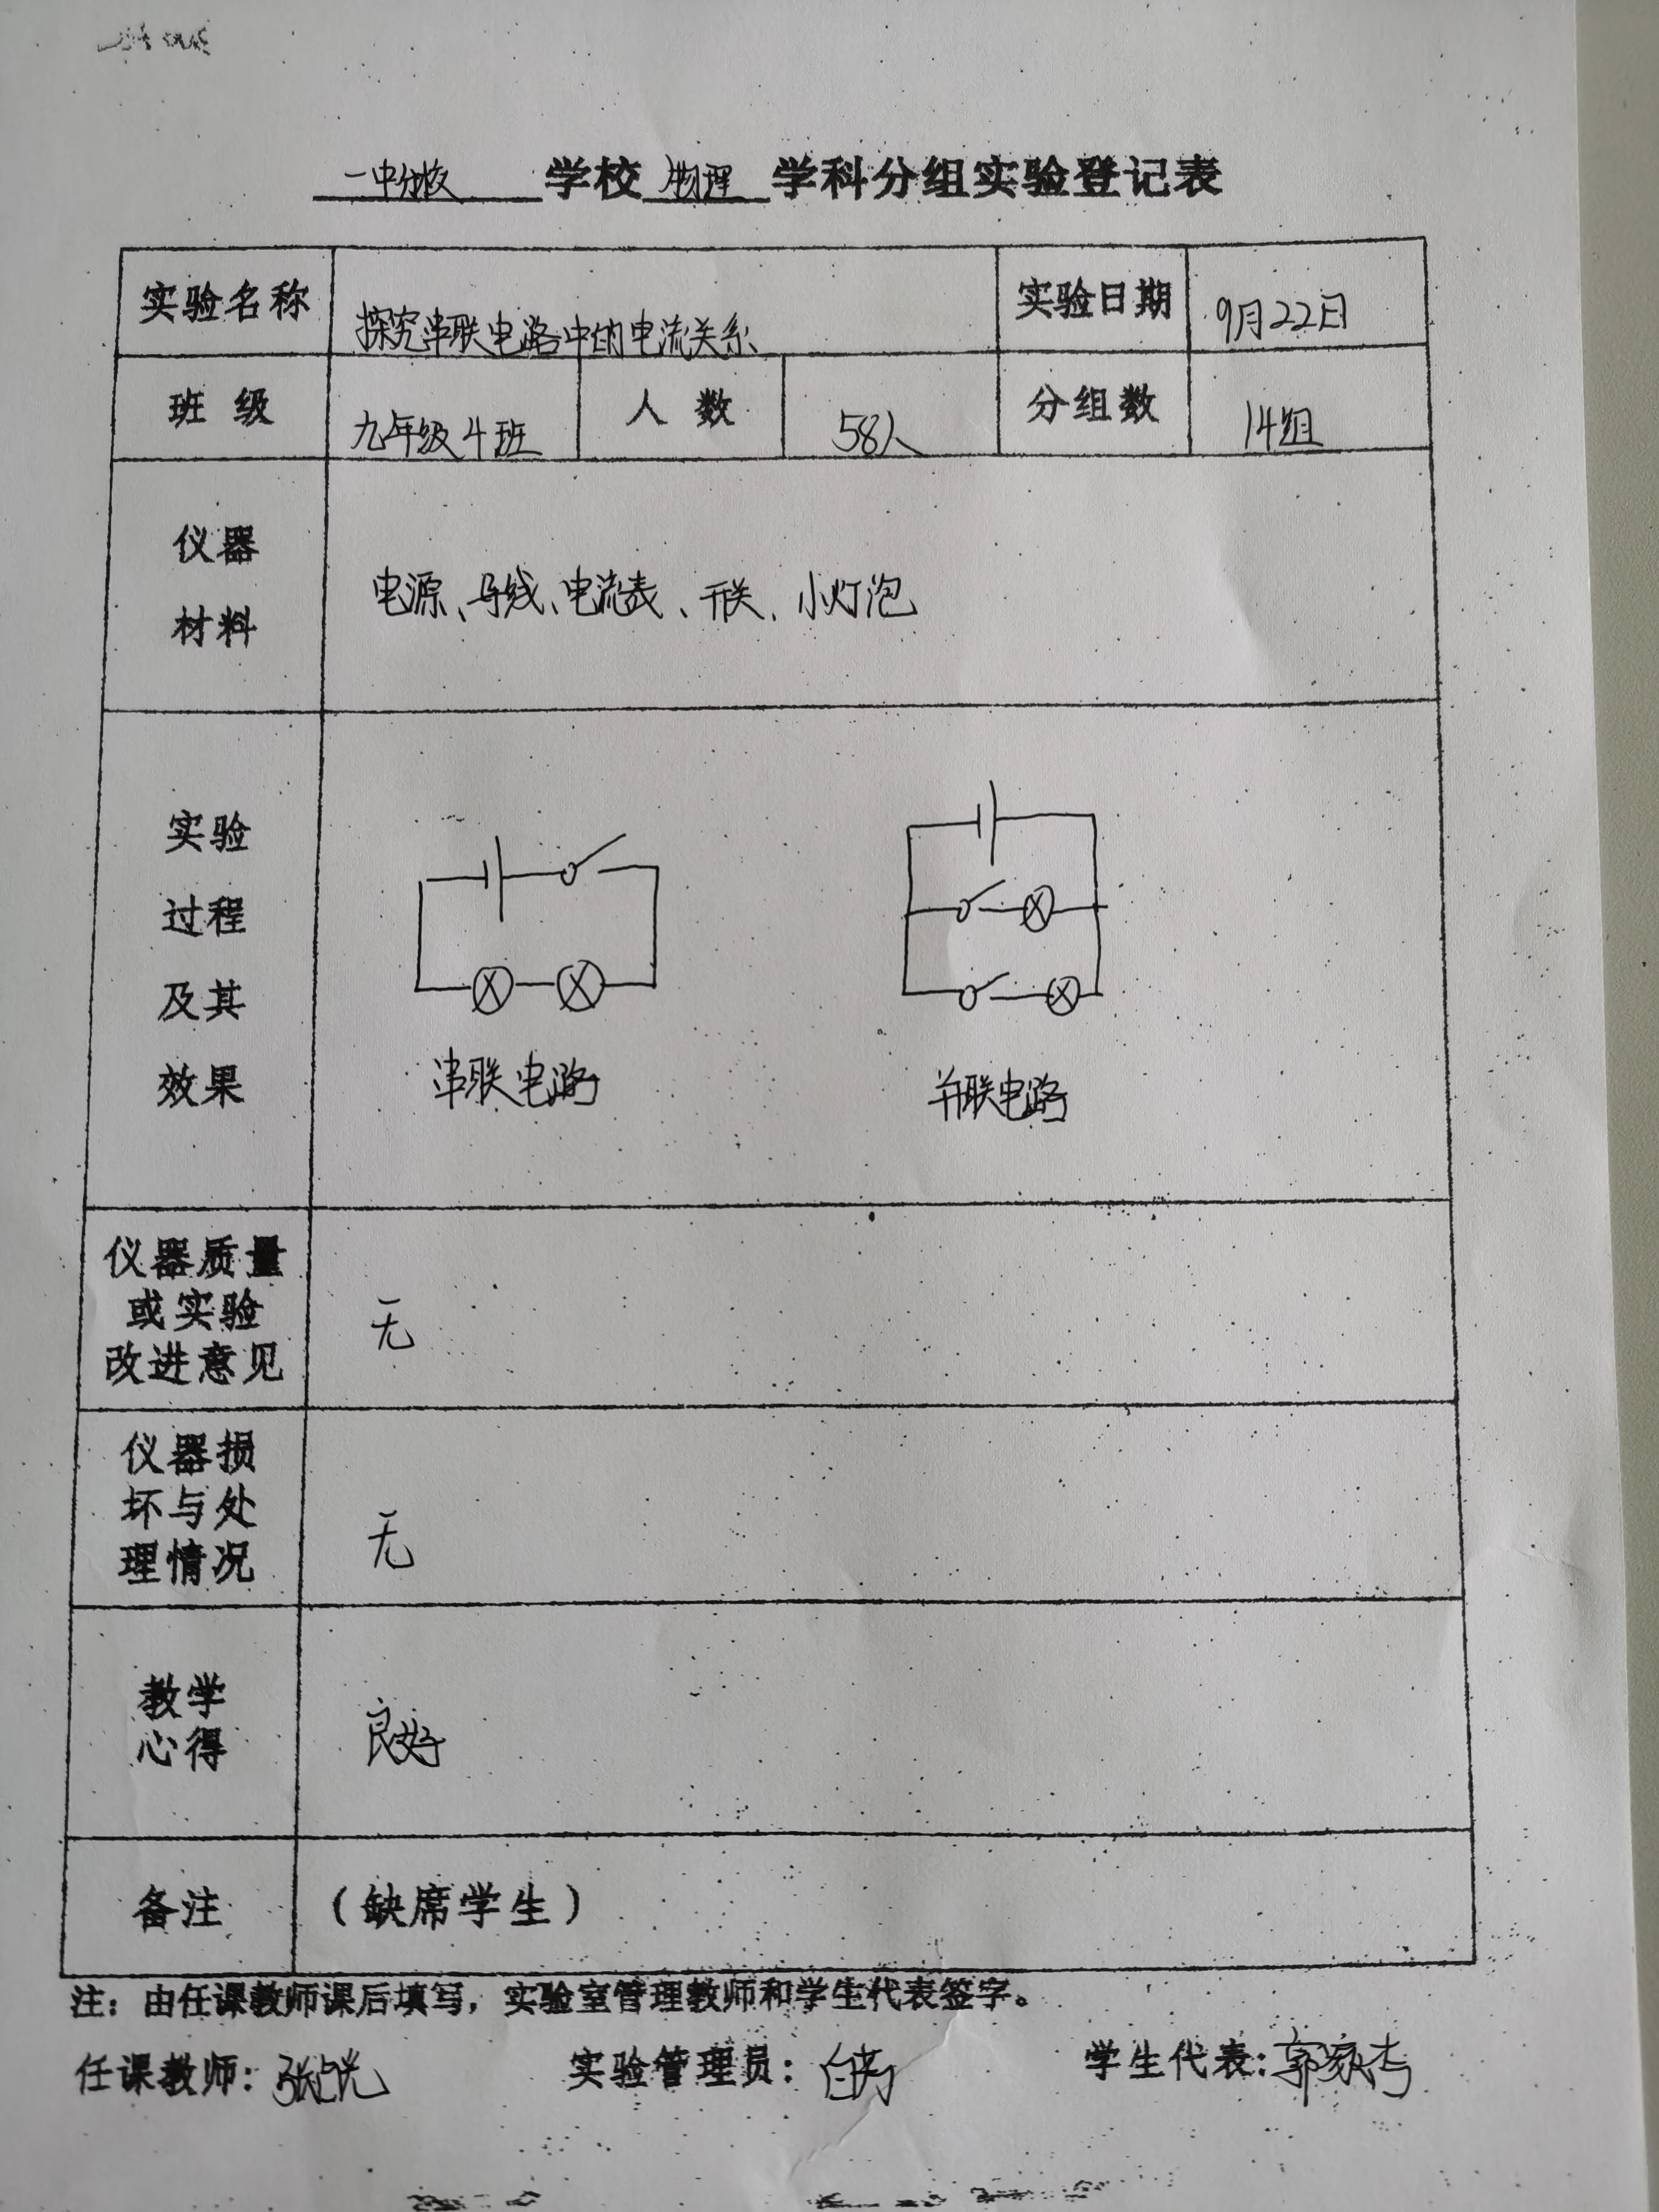 一中分校 学校 物理 学科分组实验登记表
实验名称 探究串联电路中的电流关系 实验日期 9月22日
班 级 九年级4班 人 数 58人 分组数 14组
仪器
材料
电源、导线、电流表、开关、小灯泡
实验
过程
及其
效果
串联电路 并联电路
仪器质量
或实验
改进意见
无
仪器损
坏与处
理情况
无
教学
心得
良好
备注 (缺席学生)
注：由任课教师课后填写，实验室管理教师和学生代表签字。
任课教师: 实验管理员: 学生代表: